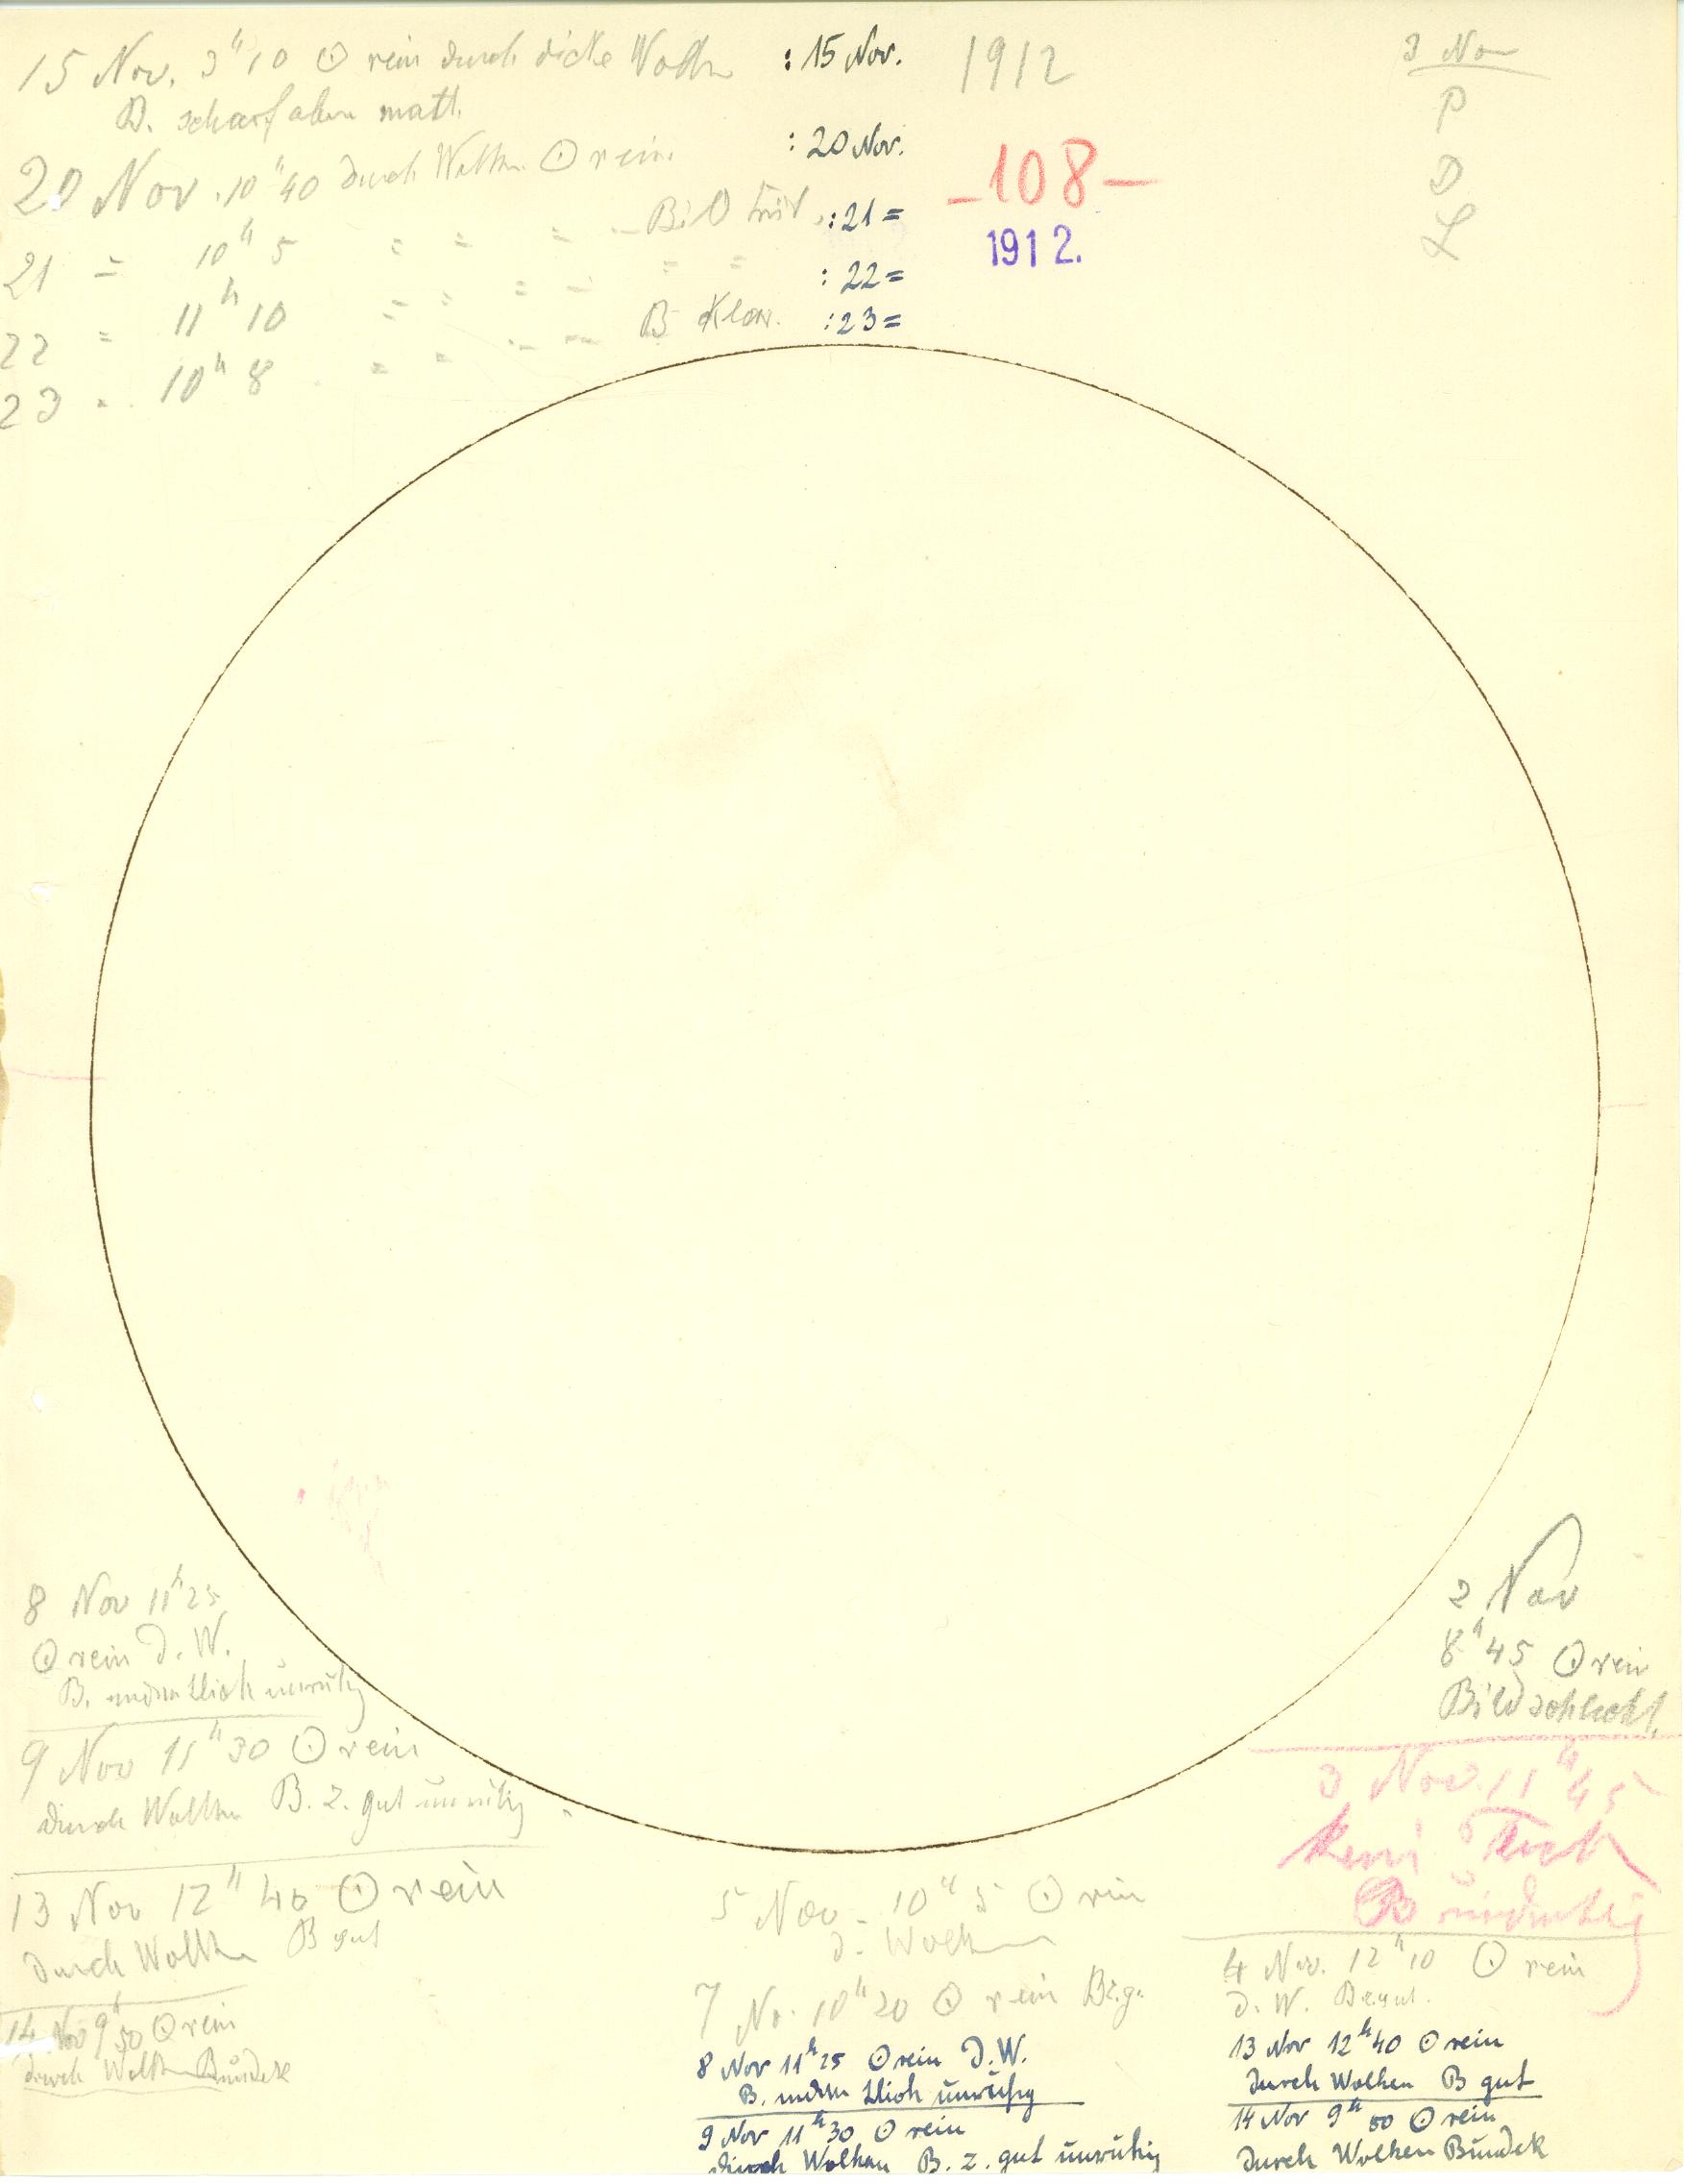 15 Nov. 3h 10 ⊙ rein durch dicke Wolken : 15 Nov. 1912
B. scharf aber matt.
20 Nov. 10h 40 durch Wolken ⊙ rein. : 20 Nov.
-108-
1912.
21 = 10h 5 = = = - Bild trüb. : 21 =
22 = 11h 10 = = = - = = : 22 =
23 = 10h 8 . = = - - B. Klar. : 23 =
3 Nov
P
D
L
8 Nov 11h 25
⊙ rein d. W.
B. undeutlich unruhig
9 Nov 11h 30 ⊙ rein
durch Wolken B. z. gut unruhig
13 Nov 12h 40 ⊙ rein
durch Wolken B gut
14 Nov 9h 50 ⊙ rein
durch Wolken
5 Nov. 10h 5 ⊙ rein
d. Wolken
7 No. 10h 20 ⊙ rein B.z.g.
8 Nov 11h 25 ⊙ rein d. W.
B. undeutlich unruhig
9 Nov 11h 30 ⊙ rein
durch Wolken B. z. gut unruhig
2 Nov
8h 45 ⊙ rein
Bild schlecht.
3 Nov. 11h 45
kein Fleck
B undeutlich
4 Nov. 12h 10 ⊙ rein
d. W.
13 Nov 12h 40 ⊙ rein
durch Wolken B gut
14 Nov 9h 50 ⊙ rein
durch Wolken